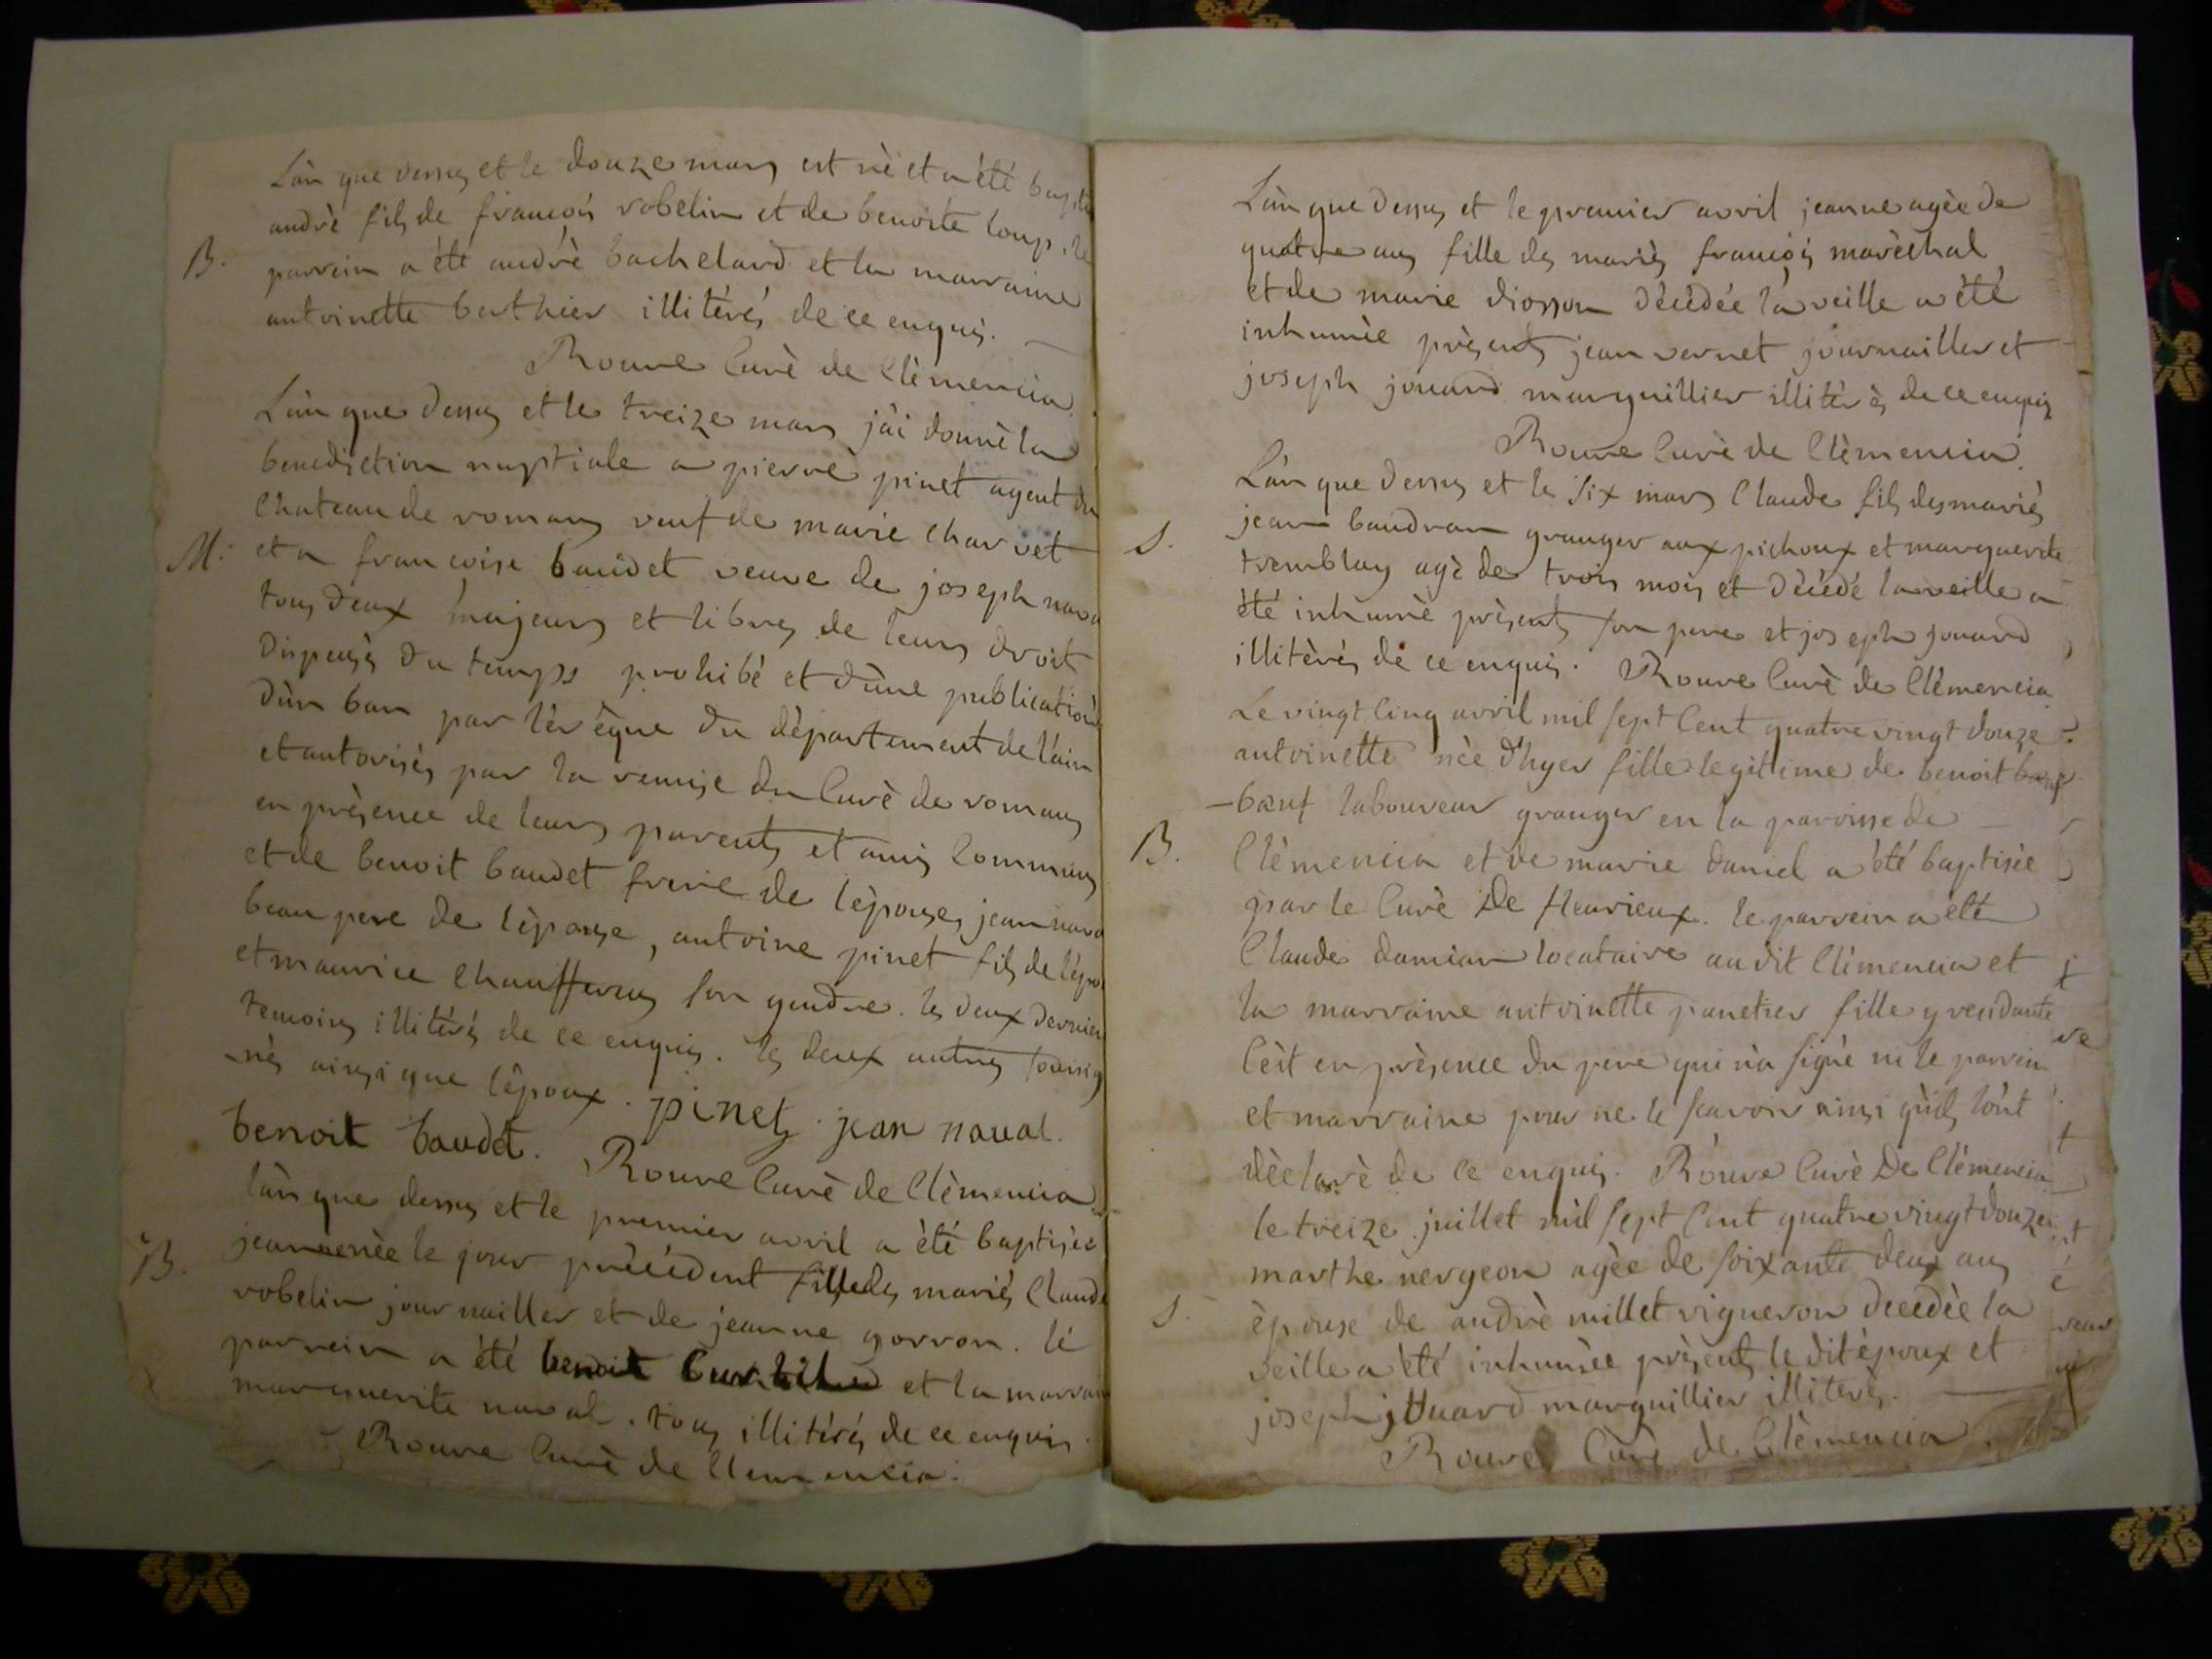 L'an que dessus et le douze mars est né et a été bapti
andrè fils de francois robelin et de benoite loup. le
B. parrein a été andrè bachelard et la marraine
antoinette berthier illitérés de ce enquis.
Rouve Curè de Clèmencia
L'an que dessus et le treize mars j'ai donnè la
benediction nuptiale a pierre pinet agent du
chateau de romans veuf de marie charvet
M: et a francoise baudet veuve de joseph nava
tous deux majeurs et libres de leurs droit
dispensés du temps prohibé et d'une publication
d'un ban par l'évêque du département de l'ain
et autorisés par la remise du Curè de romans
en prèsence de leurs parents et amis Communs
et de benoit baudet frere de l'épouse, jean nava
beau pere de l'èpouse, antoine pinet fils de l'épou
et maurice chauffurin son gendre. les deux dernier
temoins illitérés de ce enquis. les deux autres soussig
-nés ainsi que l'époux. pinet. jean naval.
benoit baudet. Rouve Curè de Clèmencia
l'an que dessus et le premier avril a été baptisée
B. jeanne nèe le jour précédent fille des mariés Claude
robelin journaillier et de jeanne gorron. le
parrein a été benoit et la marrai
marguerite naval. tous illitérés de ce enquis.
Rouve Curè de Clemencia.
L'an que dessus et le premier avril jeanne agèe de
quatre ans fille des mariès francois marèchal
et de marie diosson décédée la veille a été
inhumèe prèsents jean vernet journaillier et
joseph jouard marguillier illitérés de ce enquis
Rouve Curè de Clèmencia.
L'an que dessus et le six mars Claude fils des mariés
S. jean baudran granger aux pichoux et marguerite
tremblay agè de trois mois et décédé la veille a
été inhumè prèsents son pere et joseph jouard
illitèrés de ce enquis. Rouve Curè de Clémencia
Le vingt Cinq avril mil sept Cent quatre vingt douze
antoinette nèe d'hyer fille legitime de benoit
-bœuf laboureur granger en la paroisse de
B. Clèmencia et de marie daniel a été baptisèe
par le Curè de fleurieux. le parrein a été
Claude damian locataire au dit Clèmencia et
la marraine antoinette panetier fille y residante
C'èt en prèsence du pere qui n'a signè ni le parrein
et marraine pour ne le scavoir ainsi qu'ils l'ont
dèclarè de ce enquis. Rouve Curè de Clèmencia
le treize juillet mil sept Cent quatre vingt douze
marthe nergeon agèe de soixante deux ans
S. èpouse de andrè millet vigneron decedèe la
veille a été inhumèe prèsents le dit époux et
joseph jouard marguillier illiterés.
Rouve Curè de Clèmencia